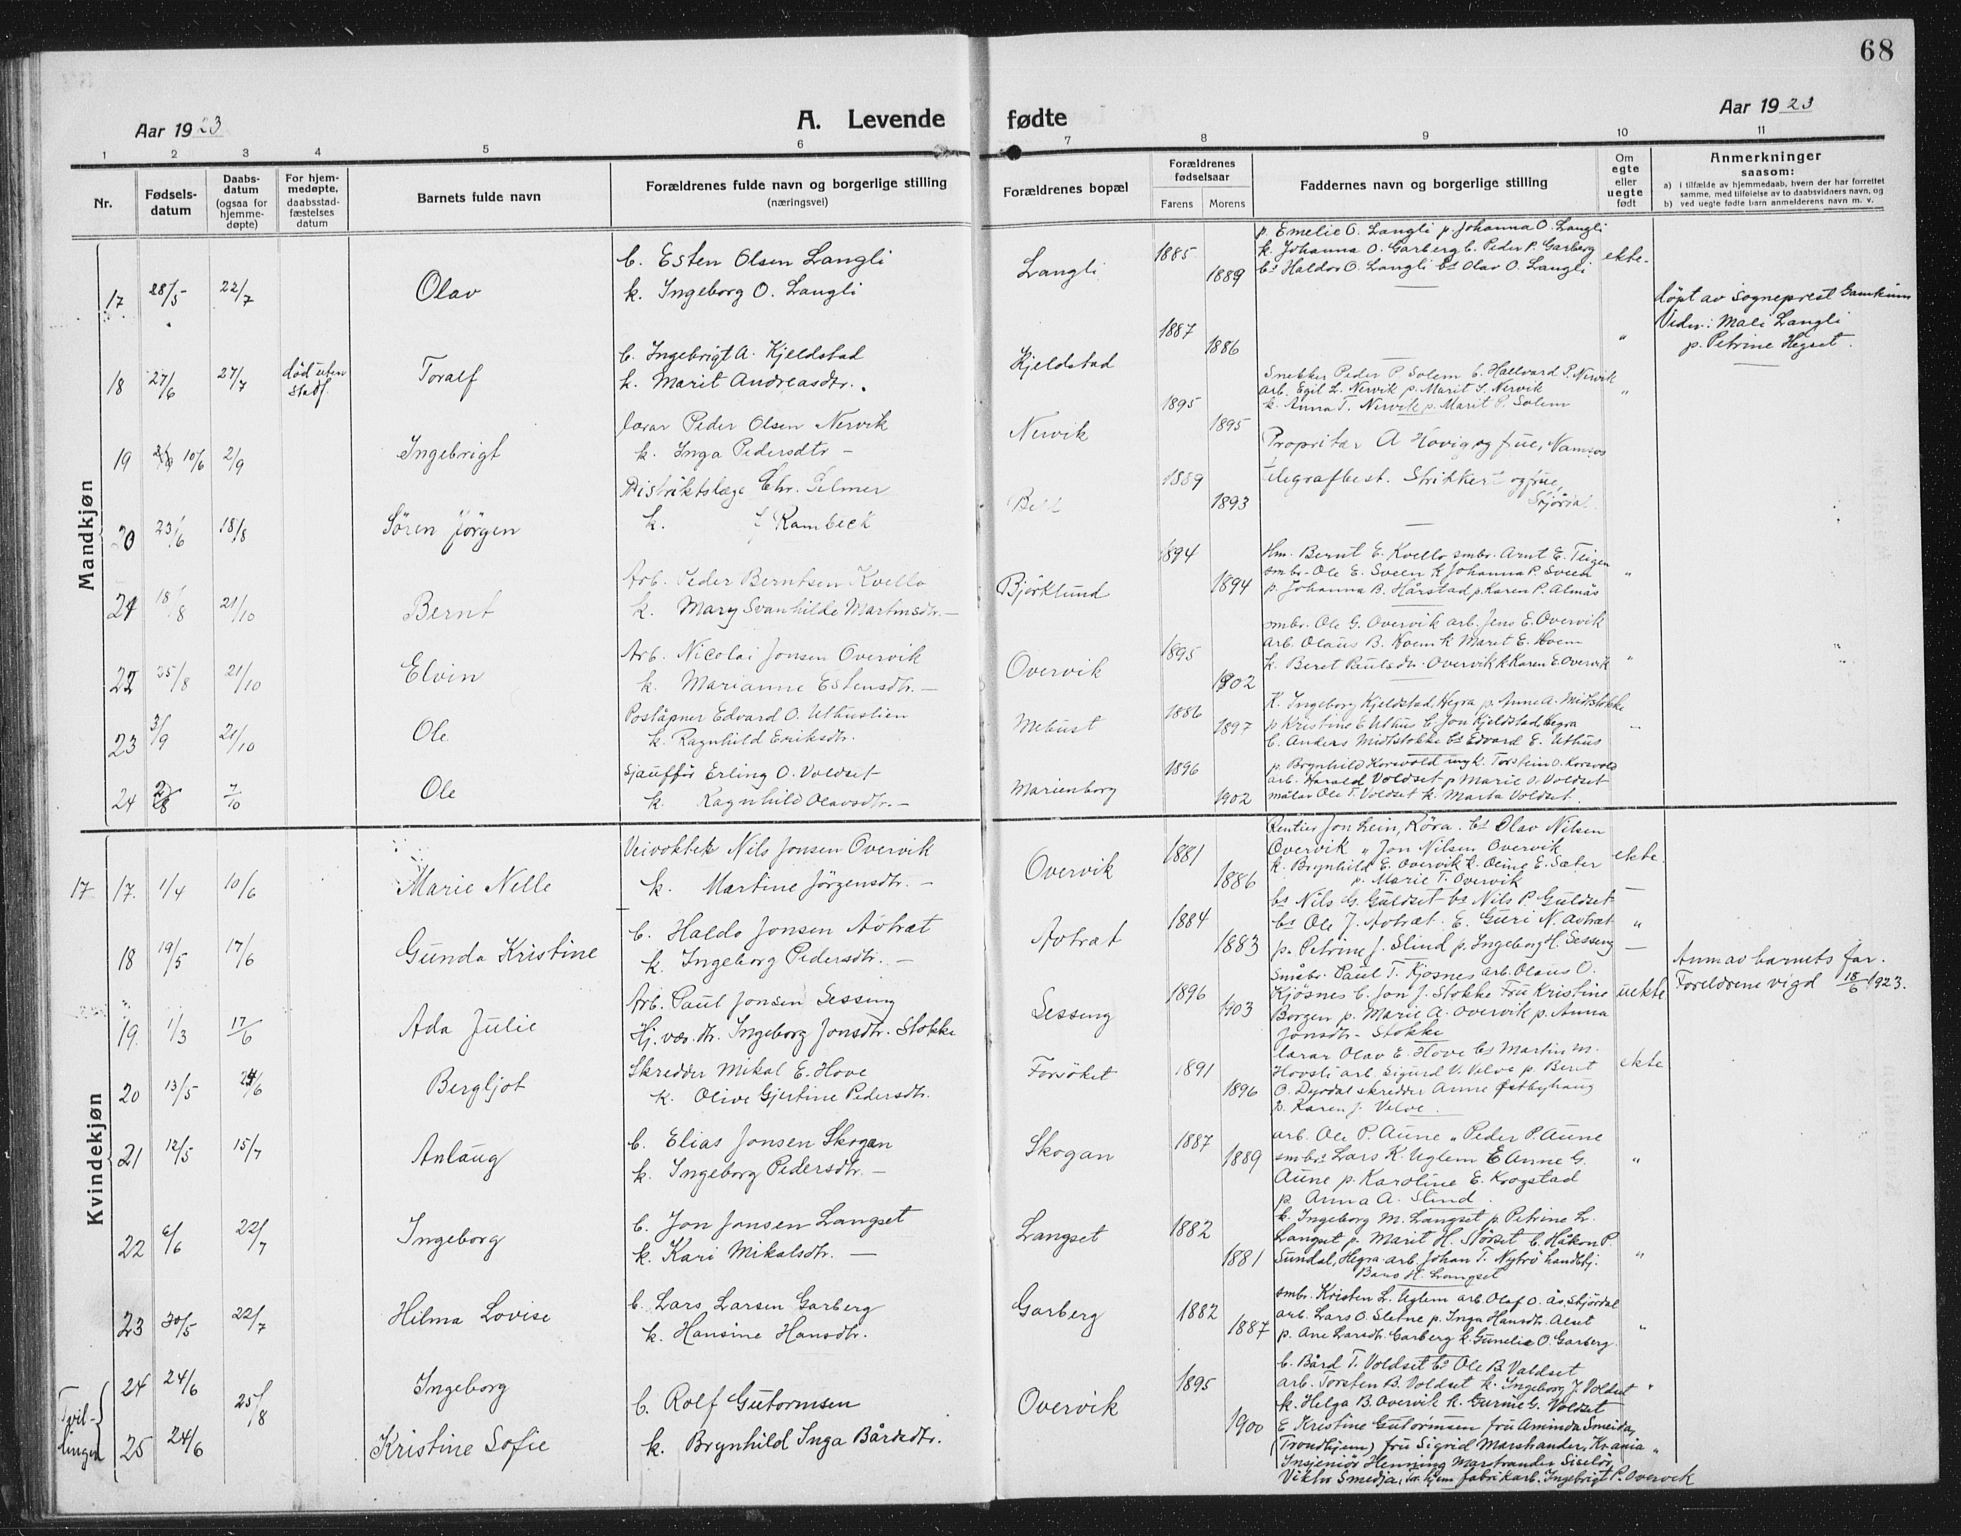 68
Aar 1923
A. Levende fødte
Aar 1923
1 2 3 4 5 6 7 8 9 10 11
Nr.
Fødsels-
datum
Daabs-
datum
(ogsaa for
hjemme-
døpte)
For hjem-
medøpte,
daabsstad-
fæstelses
datum
Barnets fulde navn
Forældrenes fulde navn og borgerlige stilling
(næringsvei)
Forældrenes bopæl
Forældrenes
fødselsaar
Farens Morens
Faddernes navn og borgerlige stilling
Om
egte
eller
uegte
født
Anmerkninger
saasom:
a) i tilfælde av hjemmedaab, hvem der har forrettet
samme, med tilføielse av to daabsvidners navn, og
b) ved uegte fødte barn anmelderens navn m. v.
Mandkjøn
17 28/5 22/7 Olav
b. Esten Olsen Langli
k. Ingeborg O. Langli
Langli 1885 1889
p. Emelie O. Langli p. Johanna O. Langli
k. Johanna O. Garberg b. Peder P. Garberg
bs Haldor O. Langli bs Olav O. Langli
ekte
18 27/6 27/7 død uten stadf. Toralf
b. Ingebrigt A. Kjeldstad
k. Marit Andreasdtr.
Kjeldstad 1887 1886 "
døpt av sogneprest
Vidn: Mali Langli
p. Petrine Hegset.
19 10/6 2/9 Ingebrigt
lærar Peder Olsen Nervik
k. Inga Pedersdtr –
Nervik 1895 1895
Snekker Peder P. Solem b. Hallvard P. Nervik
arb. Egil L. Nervik p. Marit S. Nervik
k. Anna T. Nervik p. Marit P. Solem
"
20 23/6 18/8 Søren Jørgen
Distriktslæge Chr. Pelmer
k. Rambeck
1889 1893
Propritær A Hovig og frue, Namsos
telegrafbest. Strikkert og frue,
21 18/8 21/10 Bernt
Arb. Peder Berntsen Kvello
k. Mary Svanhilde Martinsdtr. –
Bjørklund 1894 1894
Hm. Bernt E. Kvello smbr. Arnt E. Teigen
smbr. Ole E. Sveen k Johanna P. Sveen
p. Johanna B. Hårstad p. Karen P. Almås
"
22 25/8 21/10 Elvin
Arb. Nicolai Jonsen Overvik
k. Marianne Estensdtr. –
Overvik 1895 1902
smbr. Ole G. Overvik arb. Jens E. Overvik
arb. Olaus B. Hoem k Marit E. Hoem
k. Beret Paulsdtr. Overvik k Karen E Overvik
"
23 3/9 21/10 Ole
Poståpner Edvard O. Uthuslien
k. Ragnhild Eriksdtr.
Mebust 1886 1897
K. Ingeborg Kjeldstad, Hegra p. Anne A. Midtstokke
p Kristine E Uthus b. Jon Kjeldstad, Hegra
b. Anders Midtstokke bs Edvard E. Uthus
24 7/10 Ole
Sjauffør Erling O. Voldset
k. Ragnhild Olavsdtr. –
Marienborg 1896 1902
p. Brynhild Korsvold ungk. Torstein O. Korsvold
arb. Harald Voldset p Marie O. Voldset
målar Ole T. Voldset k. Marta Voldset.
Kvindekjøn
17 17. 1/4 10/6 Marie Nelle
Veivokter Nils Jonsen Overvik
k. Martine Jørgensdtr. –
Overvik 1881 1886
Rentier Jon Lein, Røra. bs Olav Nilsen
Overvik " Jon Nilsen Overvik
k. Brynhild E. Overvik k. Oline E. Sæter
p. Marie T. Overvik
ekte.
18 19/5 17/6 Gunda Kristine
b. Haldo Jonsen Avtrat
k. Ingeborg Pedersdtr. –
Avtrat 1884 1883
bs Nils G. Guldset bs Nils P Guldset
bs Ole J. Avtrat. E. Guri N. Avtrat
p. Petrine J. Slind p. Ingeborg H. Sessong
"
19. 1/3 17/6 Ada Julie
Arb. Paul Jonsen Sessong
Hj. vær. dtr. Ingeborg Jonsdtr. Stokke
Sessong 1896 1903
Småbr. Paul T. Kjøsnes arb. Olaus O.
Kjøsnes b. Jon J. Stokke Fru Kristine
Borgen p. Marie A. Overvik p. Anna
Jonsdtr. Stokke
uekte
Anm av barnets far.
Foreldrene vigd 18/6 1923.
20 13/5 24/6 Bergljot
Skredder Mikal E. Hove
k. Olive Gjertine Pedersdtr.
Forsøket 1891 1896
lærar Olav E. Hove bs Martin M.
Hovsli arb. Sigurd V. Velve p. Berit
O. Dyrdal skredder Anne Østbyhaug
p. Karen J. Velve.
ekte
21 12/5 15/7 Anlaug
b. Elias Jonsen Skogan
k. Ingeborg Pedersdtr. –
Skogan 1887 1889
arb. Ole P. Aune " Peder P. Aune
smbr: Lars K. Uglem E Anne G.
Aune p. Karoline E. Krogstad
p. Anna A. Slind.
"
22 6/6 22/7 Ingeborg
b. Jon Jonsen Langset
k. Kari Mikalsdtr. –
Langset 1882 1881
k. Ingeborg M. Langset p. Petrine L.
Langset p. Marit H. Størset b. Håkon P.
Sundal, Hegra arb. Johan T. Nytrø handlbj.
H. Langset
"
23 30/5 22/7 Hilma Lovise
b. Lars Larsen Garberg
k. Hansine Hansdtr.
Garberg 1882 1887
smbr. Kristen L. Uglem arb. Olaf O. ås. Stjørdal
arb. Lars O. Sletne p. Inga Hansdtr. Alset
p. Ane Larsdtr. Garberg k. Gunelie O. Garberg
"
Tvil-
linger
24 24/6 25/8 Ingeborg
25 24/6 Kristine Sofie
b. Rolf Gutormsen
k. Brynhild Inga Bårdsdtr.
Overvik 1895 1900
b. Bård T. Voldset bs Ole B. Valdset
arb. Torsten B. Voldset k. Ingeborg J. Voldset "
k. Helga B. Overvik k. Gurine G. Voldset
E. Kristine Gutormsen fru Aminda Smeida,
(Trondhjem) fru Sigrid Marshander, Krania "
Insjeniør Henning Marstrander
Viktor Smedja, fabrikarb. Ingebrigt P. Overvik